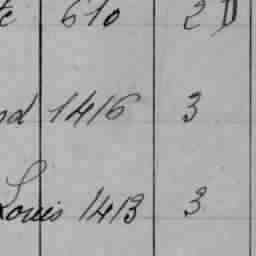 610 2 D
1416 3
Louis 1413 3